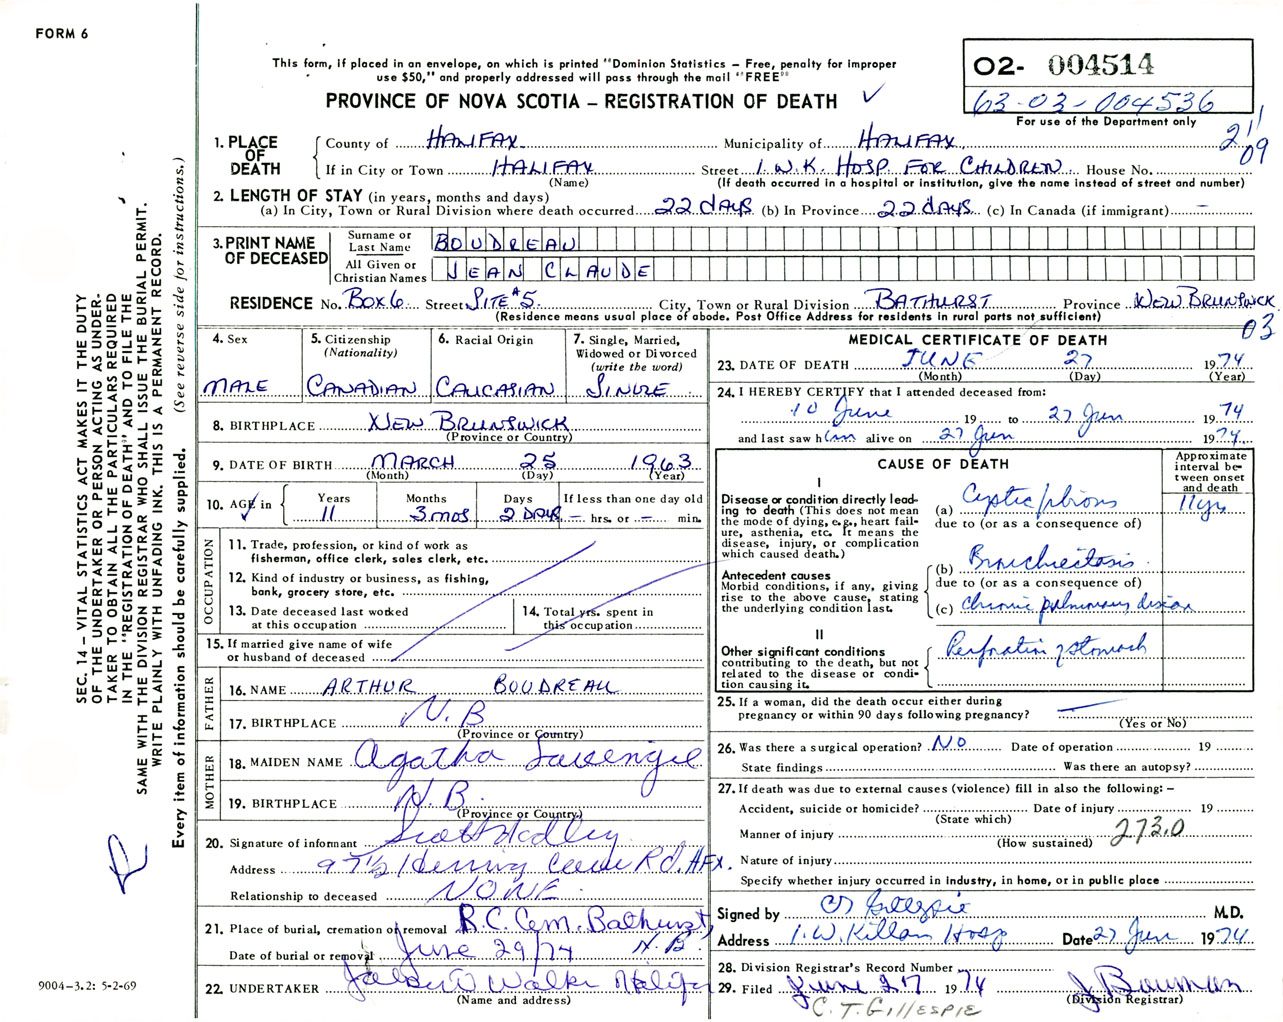 FORM 6
This form, if placed in an envelope, on which is printed "Dominion Statistics – Free, penalty for improper
use $50," and properly addressed will pass through the mail "FREE"
PROVINCE OF NOVA SCOTIA – REGISTRATION OF DEATH
O2- 004514
63-03-004536
For use of the Department only
211
09
1. PLACE OF DEATH
County of HALIFAX Municipality of HALIFAX
If in City or Town HALIFAX Street I.W.K. HOSP. FOR CHILDREN House No.
(Name) (If death occurred in a hospital or institution, give the name instead of street and number)
2. LENGTH OF STAY (in years, months and days)
(a) In City, Town or Rural Division where death occurred 22 days (b) In Province 22 days (c) In Canada (if immigrant) –
3. PRINT NAME OF DECEASED
Surname or Last Name BOUDREAU
All Given or Christian Names JEAN CLAUDE
RESIDENCE No. Box 6 Street SITE #5 City, Town or Rural Division BATHURST Province NEW BRUNSWICK
(Residence means usual place of abode. Post Office Address for residents in rural parts not sufficient)
03
4. Sex
MALE
5. Citizenship
(Nationality)
CANADIAN
6. Racial Origin
CAUCASIAN
7. Single, Married,
Widowed or Divorced
(write the word)
SINGLE
8. BIRTHPLACE NEW BRUNSWICK
(Province or Country)
9. DATE OF BIRTH MARCH 25 1963
(Month) (Day) (Year)
10. AGE in Years Months Days If less than one day old
11 3 mos 2 DAYS – hrs. or – min.
OCCUPATION
11. Trade, profession, or kind of work as
fisherman, office clerk, sales clerk, etc.
12. Kind of industry or business, as fishing,
bank, grocery store, etc.
13. Date deceased last worked
at this occupation
14. Total yrs. spent in
this occupation
15. If married give name of wife
or husband of deceased
FATHER
16. NAME ARTHUR BOUDREAU
17. BIRTHPLACE N.B
(Province or Country)
MOTHER
18. MAIDEN NAME Agatha
19. BIRTHPLACE N.B.
(Province or Country)
20. Signature of informant Scott Hadley
Address 97½ Herring Cove Rd. HFX.
Relationship to deceased NONE
21. Place of burial, cremation or removal R.C. Cem. Bathurst, N.B.
Date of burial or removal June 29/74
22. UNDERTAKER Walker Halifax
(Name and address)
MEDICAL CERTIFICATE OF DEATH
23. DATE OF DEATH JUNE 27 1974
(Month) (Day) (Year)
24. I HEREBY CERTIFY that I attended deceased from:
10 June 19 to 27 Jun 1974
and last saw him alive on 27 Jun 1974
CAUSE OF DEATH
Approximate
interval be-
tween onset
and death
I
Disease or condition directly lead-
ing to death (This does not mean
the mode of dying, e.g., heart fail-
ure, asthenia, etc. It means the
disease, injury, or complication
which caused death.)
(a) Cystic fibrosis 11 yrs
due to (or as a consequence of)
Antecedent causes
Morbid conditions, if any, giving
rise to the above cause, stating
the underlying condition last.
(b) Bronchiectasis
due to (or as a consequence of)
(c) Chronic pulmonary disease
II
Other significant conditions
contributing to the death, but not
related to the disease or condi-
tion causing it.
Perforation of stomach
25. If a woman, did the death occur either during
pregnancy or within 90 days following pregnancy? –
(Yes or No)
26. Was there a surgical operation? No Date of operation 19
State findings Was there an autopsy?
27. If death was due to external causes (violence) fill in also the following: –
Accident, suicide or homicide? Date of injury 19
(State which)
Manner of injury 273.0
(How sustained)
Nature of injury
Specify whether injury occurred in industry, in home, or in public place
Signed by CT Gillespie M.D.
Address I.W. Killam Hosp Date 27 Jun 1974
28. Division Registrar's Record Number
29. Filed June 27 1974 J Bauman
(Division Registrar)
C. T. GILLESPIE
SEC. 14 – VITAL STATISTICS ACT MAKES IT THE DUTY
OF THE UNDERTAKER OR PERSON ACTING AS UNDER-
TAKER TO OBTAIN ALL THE PARTICULARS REQUIRED
IN THE "REGISTRATION OF DEATH" AND TO FILE THE
SAME WITH THE DIVISION REGISTRAR WHO SHALL ISSUE THE BURIAL PERMIT.
WRITE PLAINLY WITH UNFADING INK. THIS IS A PERMANENT RECORD.
Every item of information should be carefully supplied. (See reverse side for instructions.)
9004-3.2: 5-2-69